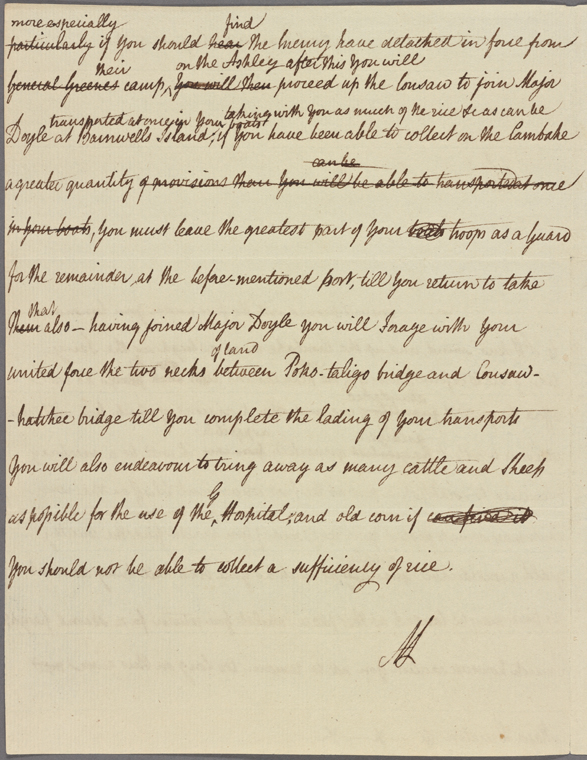 more especially find
particularly if You should hear the Enemy have detached in force from
their on the Ashley after this You will
General Greenes camp, You will then proceed up the Cousaw to join Major
transported at once in Your boats taking with you as much of the rice &c as can be
Doyle at Barnwells Island; if You have been able to collect on the Cambahe
can be
a greater quantity of provisions than You will be able to transported at once
in Your boats, You must leave the greatest part of Your troops as a Guard
for the remainder, at the before-mentioned port, till You return to take
that
them also — having joined Major Doyle You will Forage with Your
of land
united force the two necks between Poko-taligo bridge and Cousaw-
-hatchee bridge till You complete the lading of Your transports
You will also endeavour to bring away as many cattle and Sheep
G
as possible for the use of the Hospital; and old corn if
You should not be able to collect a sufficiency of rice.